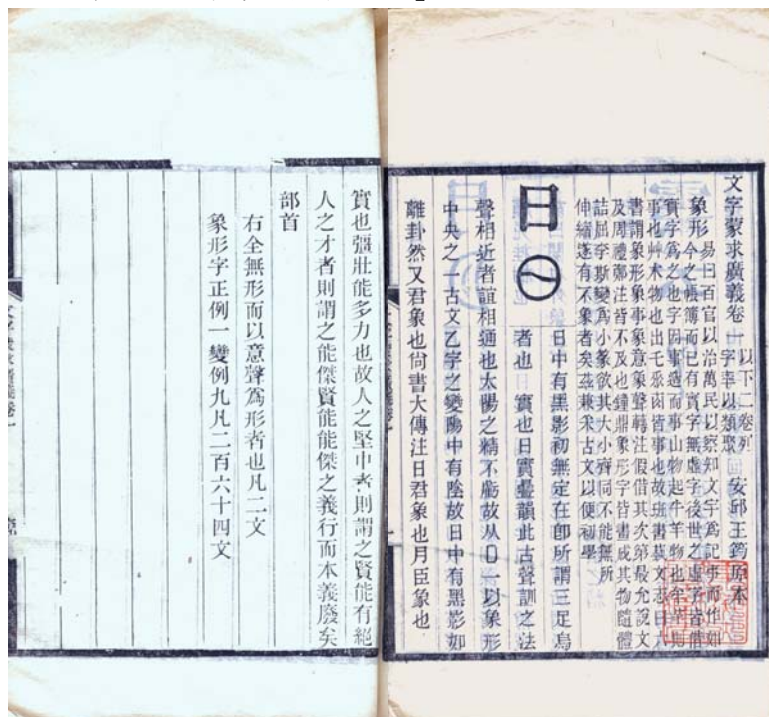 文字蒙求廣義卷一
以下二卷列
字率以類聚
安邱王筠原本
象形
易曰百官以治萬民以察知文字爲記事而作如
今之帳簿而已有實字無虛字後世之虛字皆借
實字爲之也字因事造而事由物起牛羊物也牟羋則
事也艸木物也出乇皆事也故班書藝文志曰六
書謂象形象事象意象聲轉注假借其次第最允說文
及周禮鄭注皆不及也鐘鼎象形字皆畫成其物隨體
詰屈李斯變爲小篆欲其大小齊同不能無所
伸縮遂有不象者矣茲兼采古文以便初學
日
日中有黑影初無定在卽所謂三足烏
者也 實也日實疊韻此古聲訓之法
聲相近者誼相通也太陽之精不虧故从囗一以象形
中央之一古文乙字之變陽中有陰故日中有黑影如
離卦然又君象也尙書大傳注日君象也月臣象也
實也彊壯能多力也故人之堅中者則謂之賢能有絕
人之才者則謂之能傑賢能能傑之義行而本義廢矣
部首
右全無形而以意聲爲形者也凡二文
象形字正例一變例九凡二百六十四文